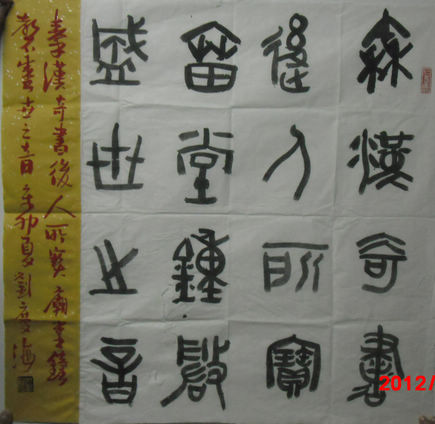 秦漢奇書
後人所寶
廟堂鐘磬
盛世之音
秦漢奇書後人所寶廟堂鐘
磬盛世之音辛卯夏劉海
2012/